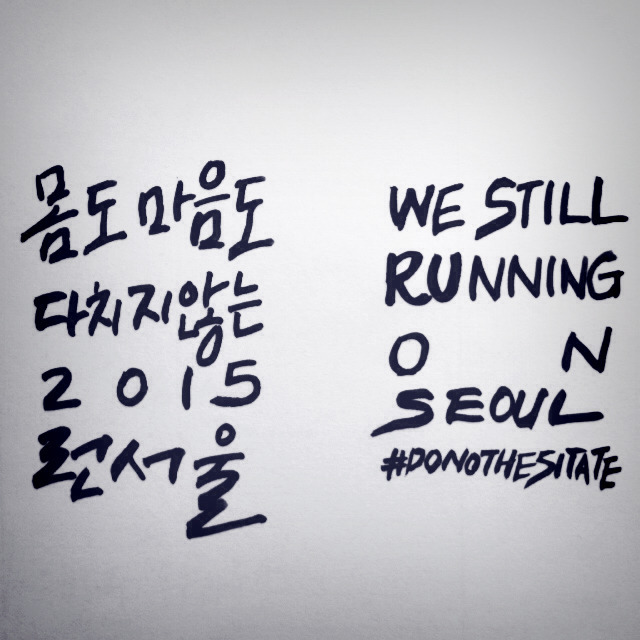 몸도 마음도
다치지않는
2015
런서울
WE STILL
RUNNING
ON
SEOUL
#DONOTHESITATE